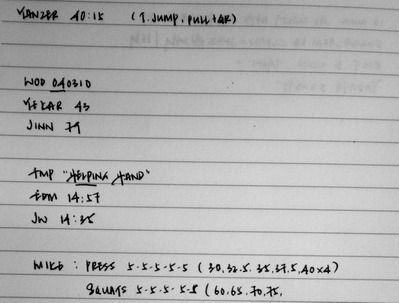 40:15 (1. JUMP, PULL + BAR)
WOD 040310
43
JINN 79
"HELPING HAND"
14:57
JW 14:35
MIKE : PRESS 5-5-5-5-5 (30, 32.5, 35, 37.5, 40x4)
SQUATS 5-5-5-5-5 (60, 65, 70, 75,